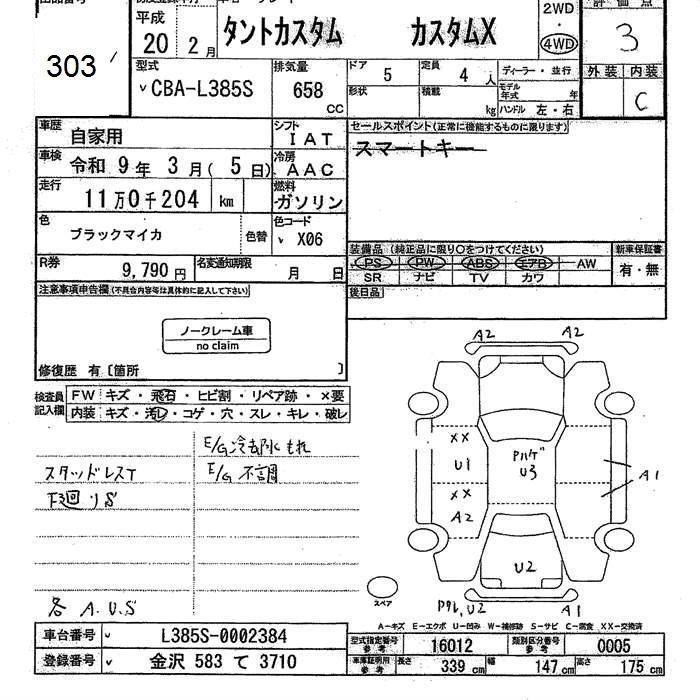 303
平成 20 年 2 月
タントカスタム カスタムX
2WD
・
4WD
評価点
3
型式 CBA-L385S
排気量 658 CC
ドア 5
定員 4 人
形状
積載 kg
ディーラー・並行
モデル年式 年
ハンドル 左・右
外装 内装
C
車歴 自家用
シフト IAT
車検 令和 9 年 3 月 ( 5 日)
冷房 AAC
走行 11万0千204 km
燃料 ガソリン
色 ブラックマイカ 色替
色コード X06
R券 9,790 円
名変通知期限 月 日
セールスポイント(正常に機能するものに限ります)
スマートキー
装備品 (純正品に限り○をつけてください)
PS PW ABS エアB AW
SR ナビ TV カワ
新車保証書
有・無
後日品
注意事項申告欄(不具合内容等は具体的に記入して下さい)
ノークレーム車
no claim
修復歴 有〔箇所 〕
検査員記入欄
FW キズ・飛石・ヒビ割・リペア跡・×要
内装 キズ・汚し・コゲ・穴・スレ・キレ・破レ
E/G冷却水もれ
E/G 不調
スタッドレスT
下廻りS
各 A.U.S
A2 A2
XX
U1
XX
A2
U3
A1
U2
スペア
U2 A1
A-キズ E-エクボ U-凹み W-補修跡 S-サビ C-腐食 XX-交換済
車台番号 L385S-0002384
登録番号 金沢 583 て 3710
型式指定番号 参考 16012
類別区分番号 参考 0005
車庫証明用 参考 長さ 339 cm 幅 147 cm 高さ 175 cm